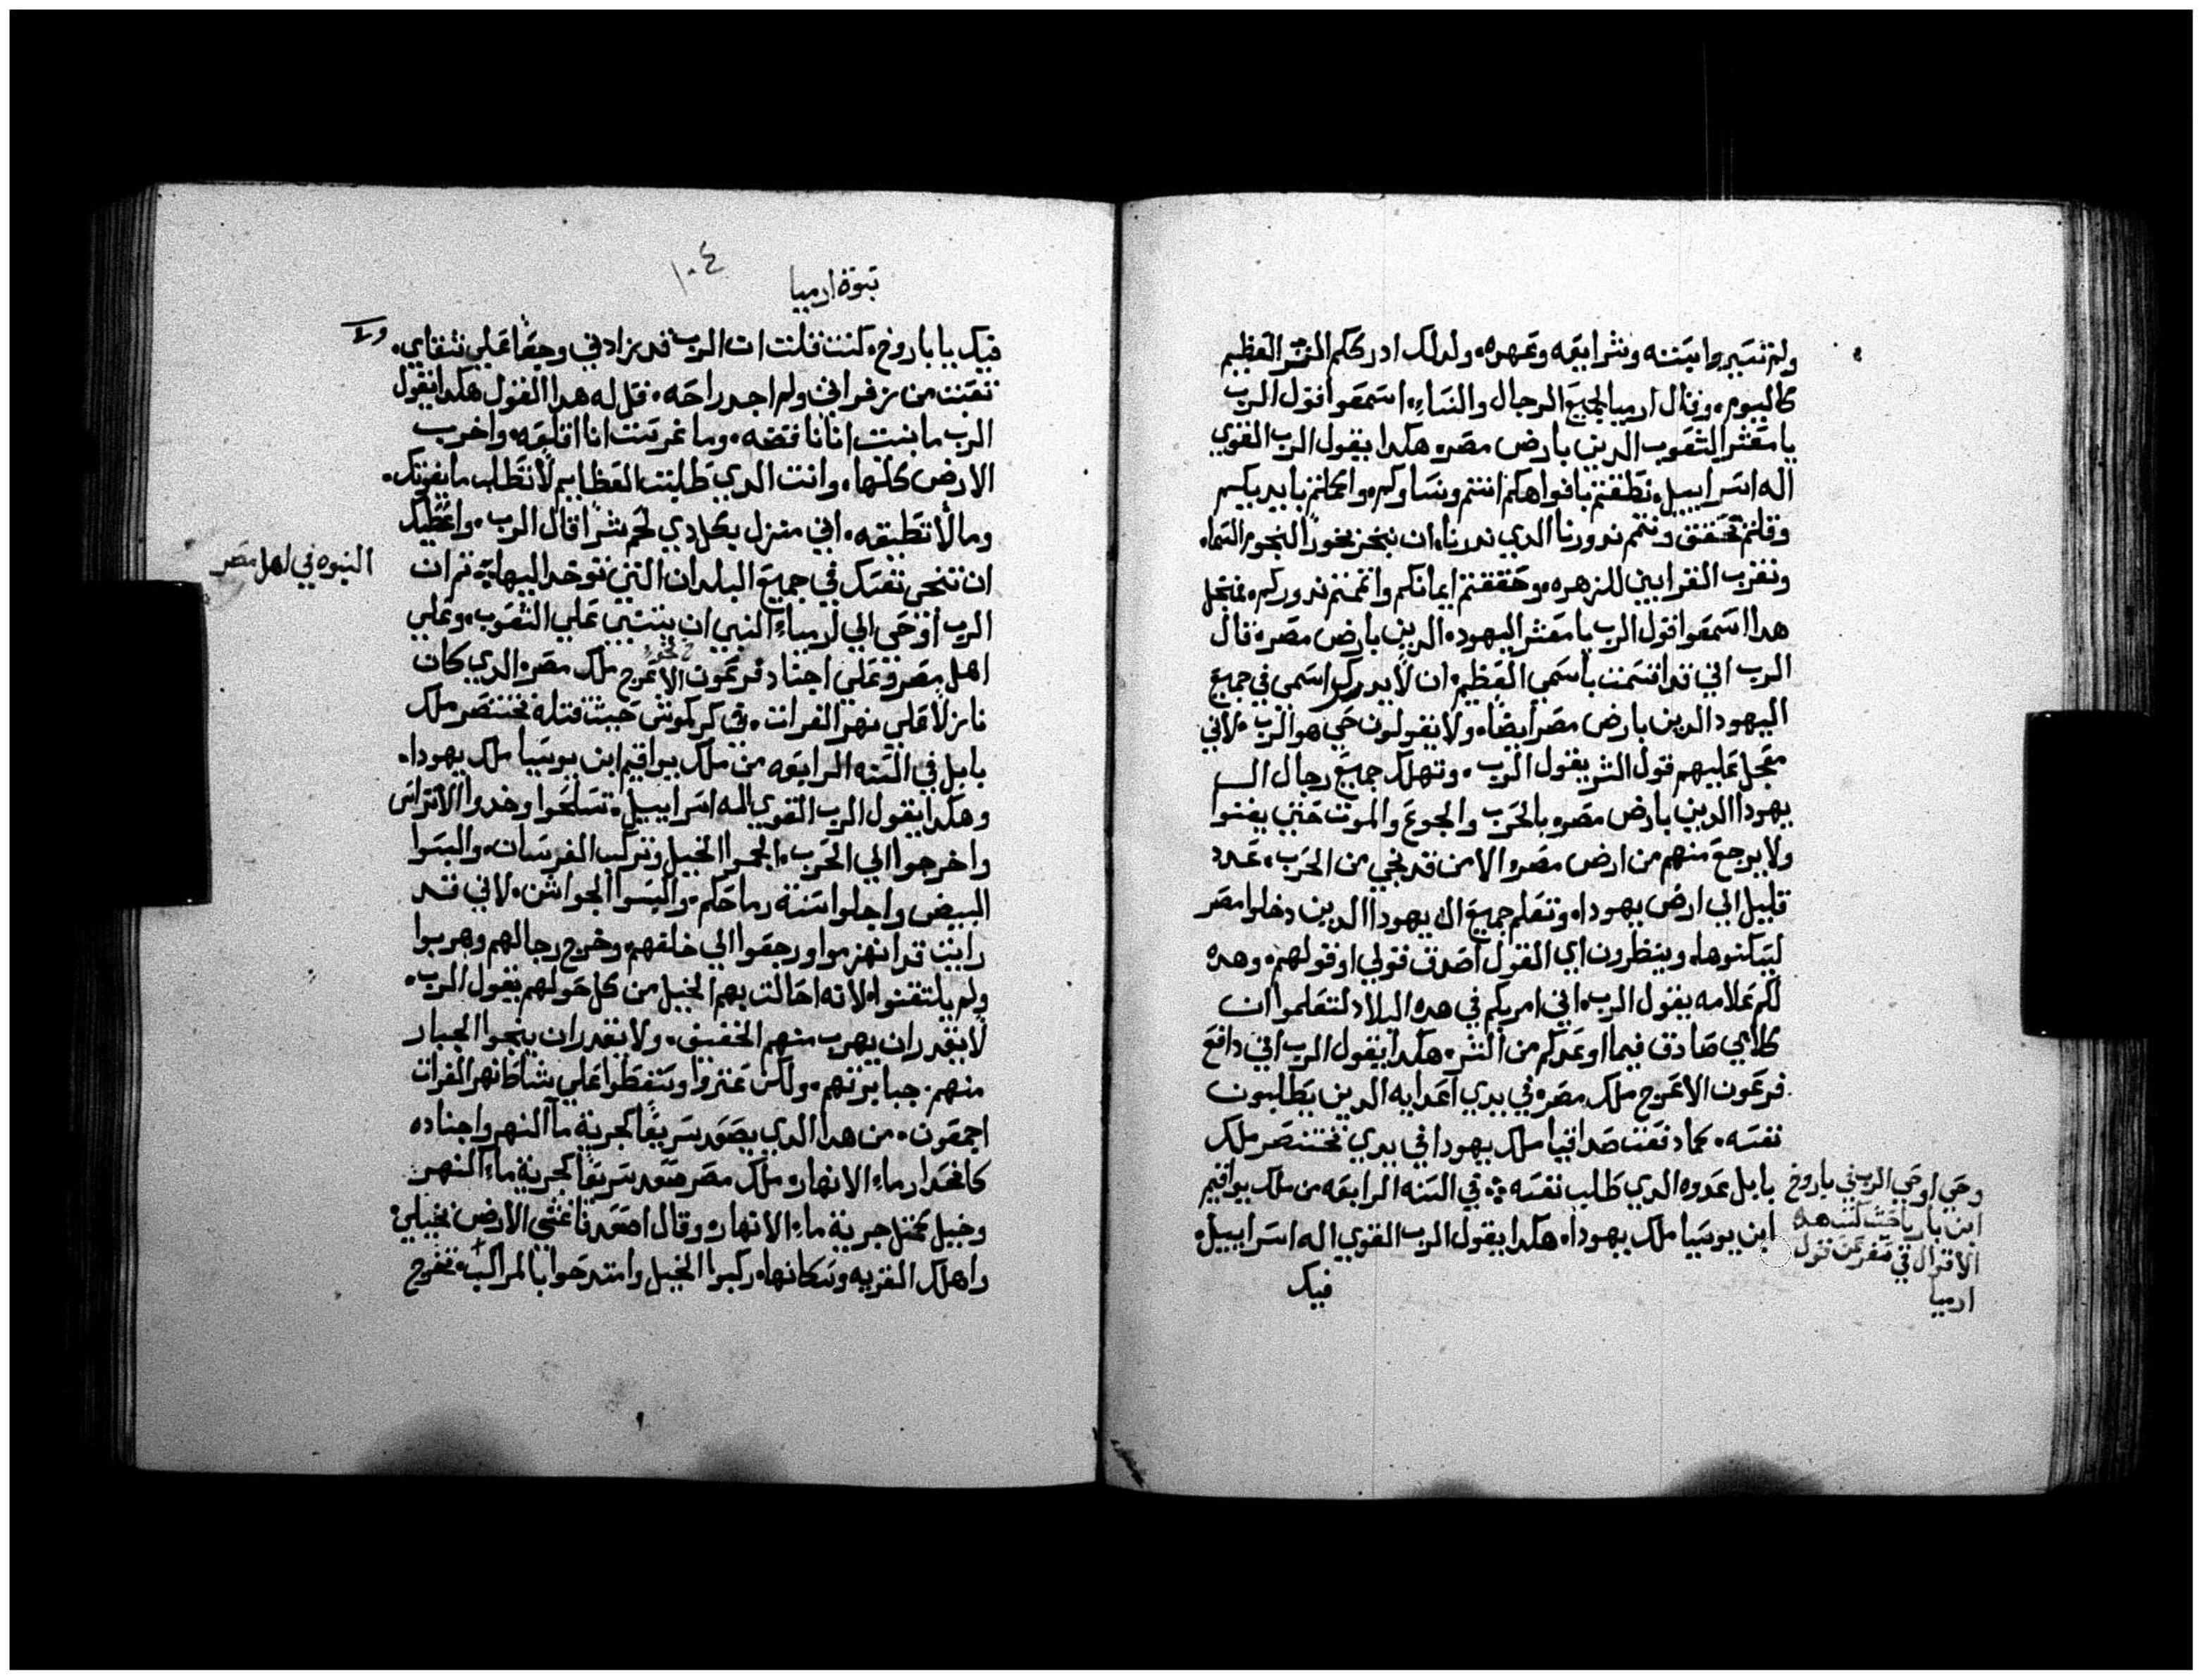 ولم تسيروا بسننه وشرايعه وعهده ولدلك ادرككم الشر العظيم
كاليوم وقال ارميا لجميع الرجال والنساء اسمعوا قول الرب
يا معشر الشعوب الدين بارض مصر هكدا يقول الرب القوي
اله اسراييل نطقتم بافواهكم انتم ونساوكم واكملتم بايديكم
وقلتم نحقق ونتم ندورنا الدي ندرنا ان نبخر بخورا لنجوم السماء
ونقرب القرابين للزهره وحققتم ايمانكم واتممتم ندوركم فمن اجل
هدا اسمعوا قول الرب يا معشر اليهود الدين بارض مصر قال
الرب اني قد اقسمت باسمي العظيم ان لا يدكر اسمي في جميع
اليهود الدين بارض مصر ايضا ولا يقولون حي هو الرب لاني
معجل عليهم قول الشر يقول الرب وتهلك جميع رجال ال
يهودا الدين بارض مصر بالحرب والجوع والموت حتي يفنوا
ولا يرجع منهم من ارض مصر الا من قد نجي من الحرب عدد
قليل الي ارض يهودا وتعلم جميع ال يهودا الدين دخلوا مصر
ليسكنوها وينظرون اي القول اصدق قولي او قولهم وهده
لكم علامه يقول الرب اني امركم في هده البلاد لتعلموا ان
كلامي صادق فيما اوعدكم من الشر هكدا يقول الرب اني دافع
فرعون الاعرج ملك مصر في يدي اعدايه الدين يطلبون
نفسه كما دفعت صداقيا ملك يهودا في يدي بختنصر ملك
بابل عدوه الدي طلب نفسه في السنه الرابعه من ملك يواقيم
ابن يوسيا ملك يهودا هكدا يقول الرب القوي اله اسراييل
فيك
وحي اوحي الرب في باروخ
ابن باريا حيث كتب هده
الاقوال في سفر عن قول
ارميا
نبوة ارميا
١٠٤
فيك يا باروخ كنت قلت ان الرب قد زادني وجعا علي شقاي
ولا
تعبت من زفراتي ولم اجد راحه فقل له هدا القول هكدا يقول
الرب ما بنيت انا انا نا قضه وما غرست انا اقلعه واخرب
الارض كلها وانت الدي طلبت العظايم لا تطلب ما يفوتك
وما لا تطيقه اني منزل بكل دي لحم شرا قال الرب واعطيك
ان تنجي نفسك في جميع البلدان التي توخد اليها ثم ان
النبوه في اهل مصر
الرب اوحي الي ارمياء النبي ان يتنبي علي الشعوب وعلي
اهل مصر وعلي اجناد فرعون الاعرج ملك مصر الدي كان
نازلا علي نهر الفرات في كركموش حيث قتله بختنصر ملك
بابل في السنه الرابعه من ملك يواقيم ابن يوسيا ملك يهودا
وهكدا يقول الرب القوي اله اسراييل تسلحوا وخدوا الاتراس
واخرجوا الي الحرب الجموا الخيل وتركب الفرسان والبسوا
البيض واجلوا اسنة رماحكم والبسوا الجواشن لاني قد
رايت قد انهزموا ورجعوا الي خلفهم وخرج رجالهم وهربوا
ولم يلتفتوا لانه احالت بهم الخيل من كل حولهم يقول الرب
لا يقدر ان يهرب منهم الخفيف ولا يقدر ان ينجوا الجبار
منهم جبابرتهم ولكن عثروا وسقطوا علي شاط نهر الفرات
اجمعون من هدا الدي يصعد سريعا كجرية ما النهر واجناده
كانحدار ماء الانهار ملك مصر صعد سريعا كجرية ماء النهر
وخيل تمثل جرية ماء الانهار وقال اصعد فاغشي الارض بخيلي
واهلك القريه وسكانها اركبوا الخيل وامتدحوا بالمراكب تخرج